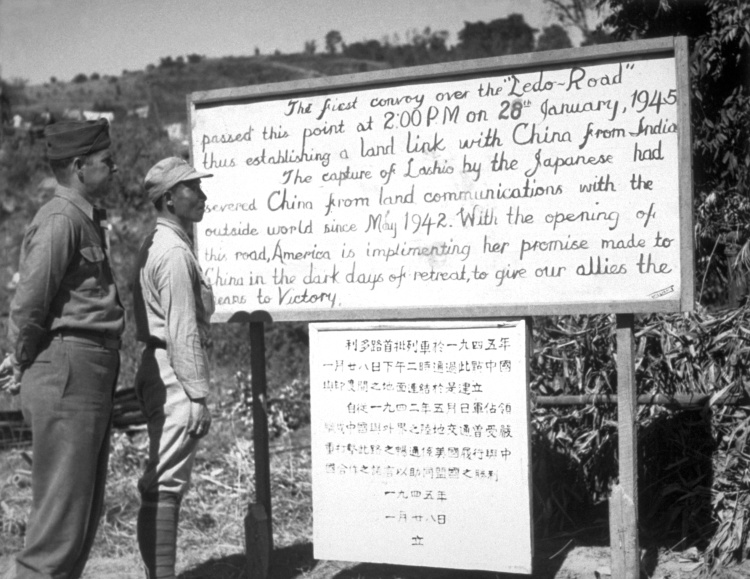 The first convoy over the "Ledo-Road"
passed this point at 2:00 PM on 28th January, 1945
thus establishing a land link with China from India
The capture of Lashio by the Japanese had
severed China from land communications with the
outside world since May 1942. With the opening of
this road, America is implimenting her promise made to
China in the dark days of retreat, to give our allies the
means to Victory.
利多路首批列車於一九四五年
一月廿八日下午二時通過此點中國
與印度間之地面連結於是建立
自從一九四二年五月日軍佔領
中國與外界之陸地交通曾受
此路之暢通係美國履行與中
國合作之諾言以助同盟國之勝利
一九四五年
一月廿八日
立